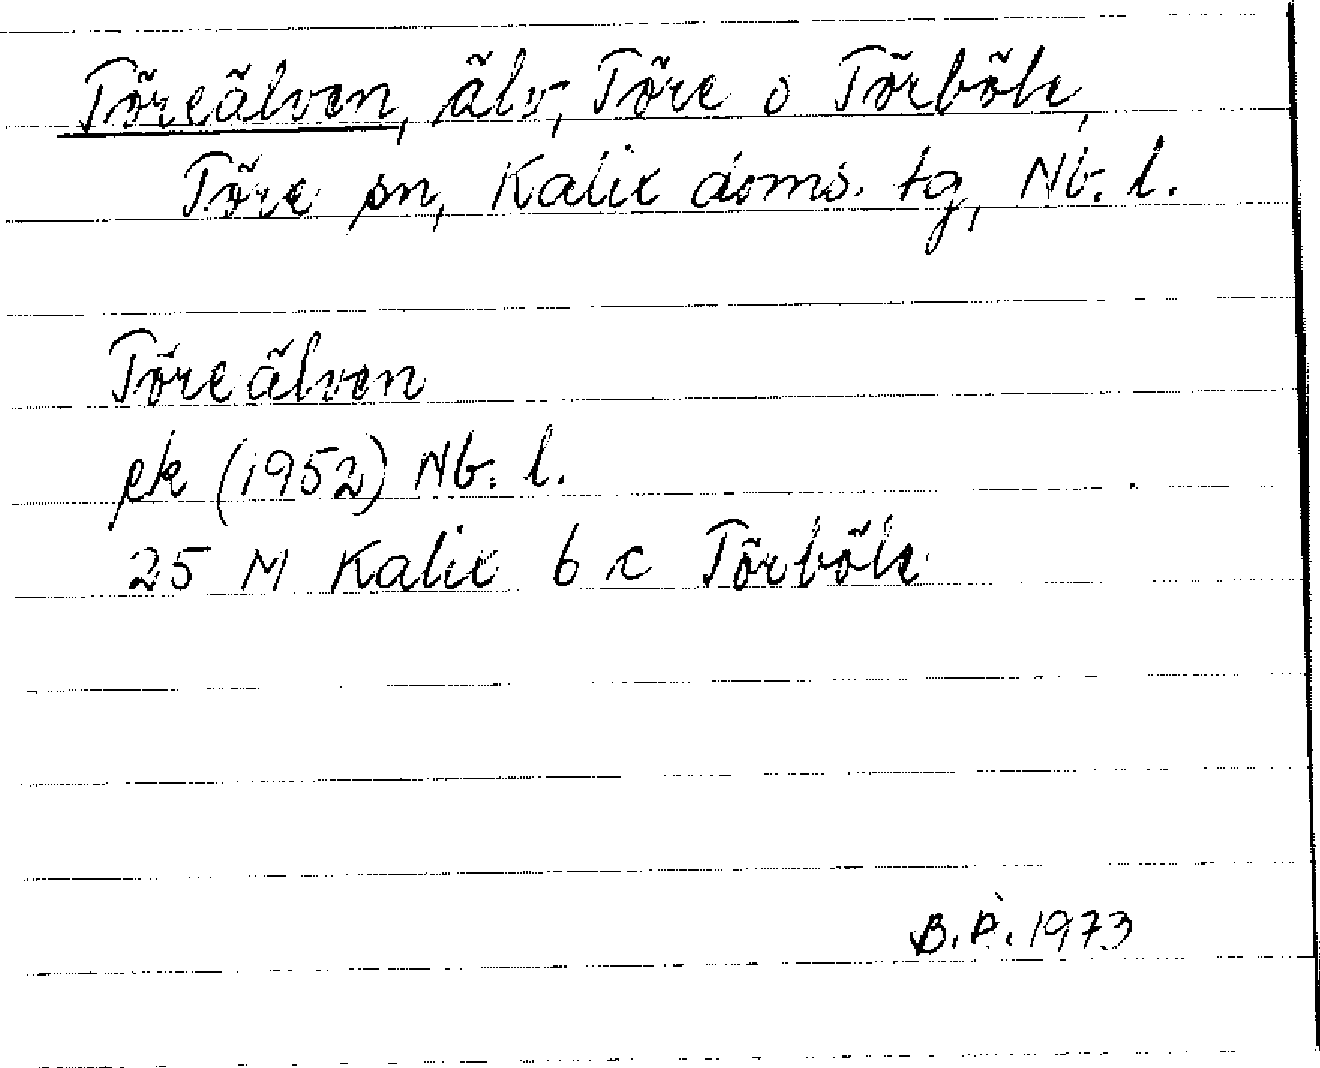 Töreälven, älv, Töre o Törböle,
Töre sn, Kalix doms. tg, Nb. l.
Töreälven
ek (1952) Nb. l.
25 M Kalix 6 c Törböle
B.P. 1973